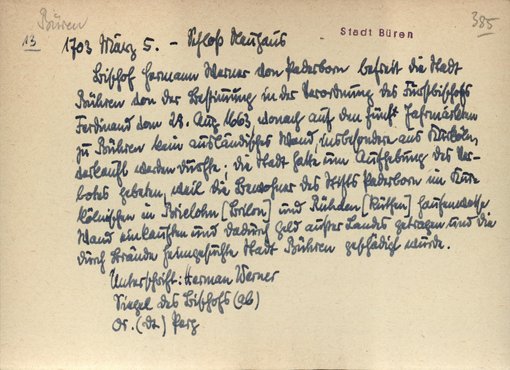 Büren
385
13
Stadt Büren
1703 März 5. - Schloß Neuhaus
Bischof Hermann Werner von Paderborn befreit die Stadt
Bühren von der Bestimmung in der Verordnung des Fürstbischofs
Ferdinand vom 28. Aug. 1663 wonach auf den fünf Jahrmärkten
zu Bühren kein ausländisches Wand, insbesondere aus Kurköln,
verkauft werden durfte; die Stadt hatte um Aufhebung des Ver-
botes gebeten, weil die Bewohner des Stifts Paderborn im Kur-
kölnischen in Brielohn [Brilon] und Rühden [Rüthen] haufenweise
Wand einkauften und dadurch Geld außer Landes getragen und die
durch Brände heimgesuchte Stadt Bühren geschädigt wurde.
Unterschrift: Herman Werner
Siegel des Bischofs (ab)
Or. (dt.) Perg